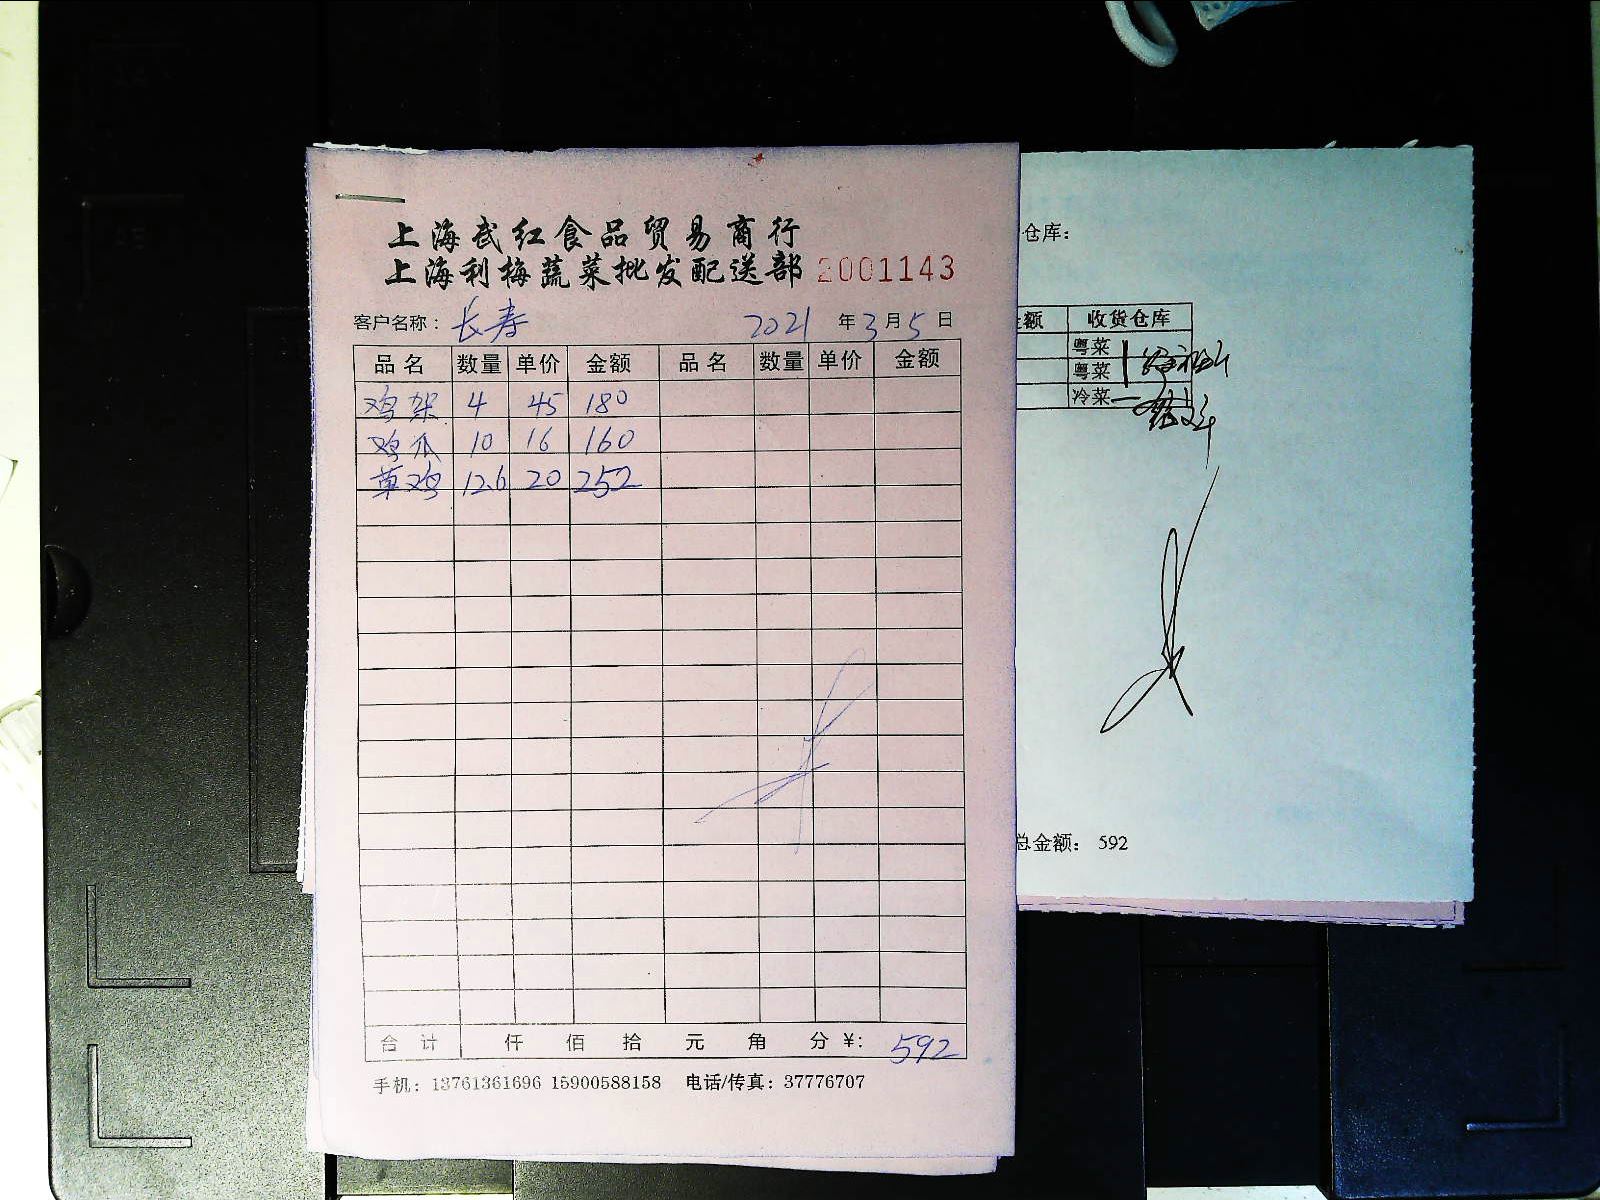 上海武红食品贸易商行
上海利梅蔬菜批发配送部 2001143
客户名称: 长寿 2021 年 3 月 5 日
品名 数量 单价 金额 品名 数量 单价 金额
鸡架 4 45 180
鸡爪 10 16 160
草鸡 12.6 20 252
合计 仟 佰 拾 元 角 分 ¥: 592
手机: 13761361696 15900588158 电话/传真: 37776707
仓库:
金额 收货仓库
粤菜
粤菜
冷菜
总金额: 592